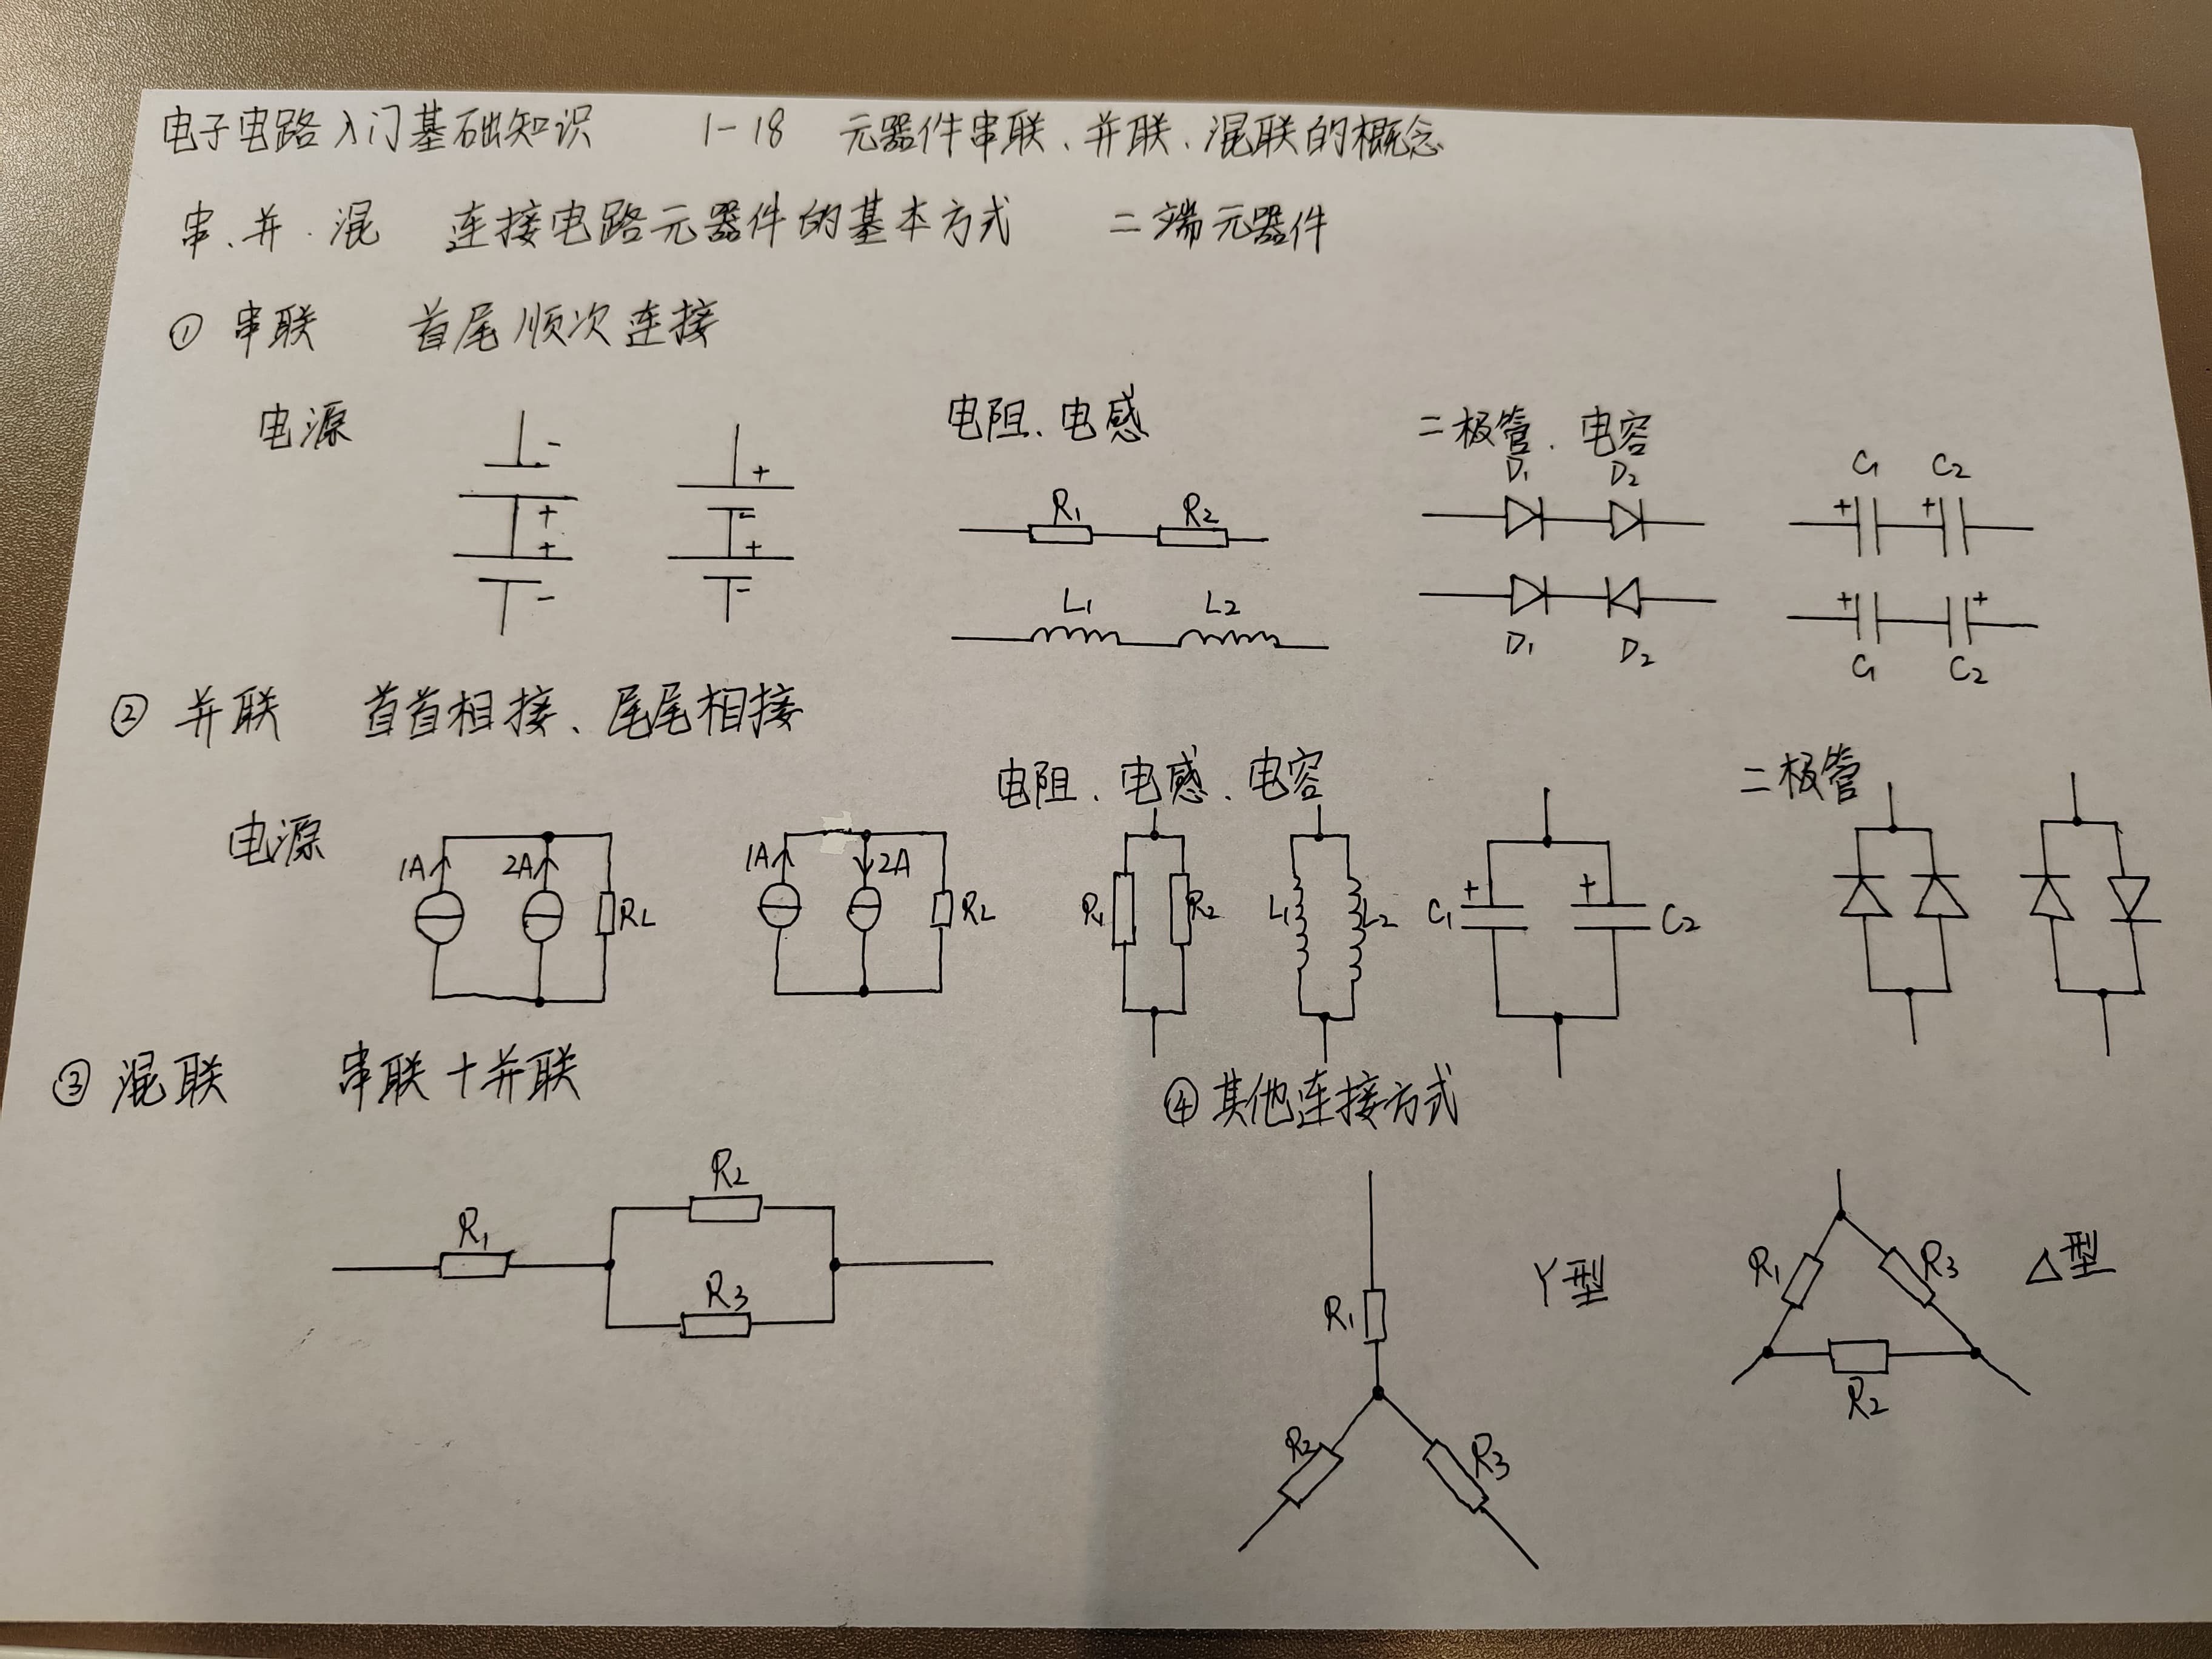 电子电路入门基础知识 1-18 元器件串联、并联、混联的概念
串、并、混 连接电路元器件的基本方式 二端元器件
① 串联 首尾顺次连接
电源 电阻、电感 二极管、电容
- + + -
+ - + -
R1 R2
L1 L2
D1 D2
D1 D2
C1 C2
+ +
+ +
C1 C2
② 并联 首首相接、尾尾相接
电源 电阻、电感、电容 二极管
1A 2A RL
1A 2A RL
R1 R2
L1 L2
C1 + + C2
③ 混联 串联+并联
R1 R2 R3
④ 其他连接方式
R1 R2 R3 Y型
R1 R3 R2 △型